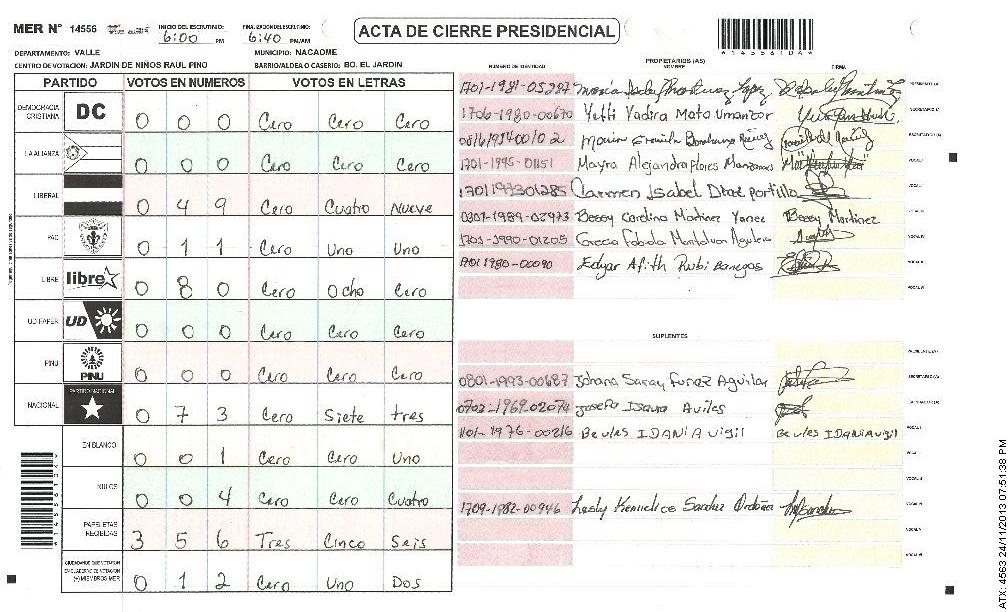 MER N° 14556 INICIO DEL ESCRUTINIO: 6:00 PM FINALIZACION DEL ESCRUTINIO: 6:40 PM/AM
ACTA DE CIERRE PRESIDENCIAL
DEPARTAMENTO: VALLE MUNICIPIO: NACAOME
CENTRO DE VOTACION: JARDIN DE NIÑOS RAUL PINO BARRIO/ALDEA O CASERIO: BO. EL JARDIN
PARTIDO VOTOS EN NUMEROS VOTOS EN LETRAS
DEMOCRACIA CRISTIANA DC 0 0 0 Cero Cero Cero
LA ALIANZA 0 0 0 Cero Cero Cero
LIBERAL 0 4 9 Cero Cuatro Nueve
PAC 0 1 1 Cero Uno Uno
LIBRE libre 0 8 0 Cero Ocho Cero
UD-FAPER UD 0 0 0 Cero Cero Cero
PINU PINU 0 0 0 Cero Cero Cero
NACIONAL PARTIDO NACIONAL 0 7 3 Cero Siete tres
EN BLANCO 0 0 1 Cero Cero Uno
NULOS 0 0 4 Cero Cero Cuatro
PAPELETAS RECIBIDAS 3 5 6 Tres Cinco Seis
CIUDADANOS QUE VOTARON EN CUADERNO DE VOTACION (+) MIEMBROS MER 0 1 2 Cero Uno Dos
PROPIETARIOS (AS)
NUMERO DE IDENTIDAD NOMBRE FIRMA
1701-1981-05287 Maria
1706-1980-00670 Yetti Yadira Mato Umanzor
Maria
1701-1995-01151 Mayra Alejandra Flores
1701199301285 Carmen Isabel Portillo
0801-1989-02973 Bessy Carolina Martinez Yanez Bessy Martinez
1701-1990-01205 Greca Fabiola
1701 1980-00090 Edgar Afith Rubi Banegas
SUPLENTES
0801-1993-00687 Johana Saray Funez Aguilar
0702-1969-02074 Josefa Isaura Aviles
1101-1976-00216 Beules IDANIA Vigil Beules IDANIA Vigil
1709-1982-00946 Lesly Ordoñez
ATX: 4563 24/11/2013 07:51:38 PM